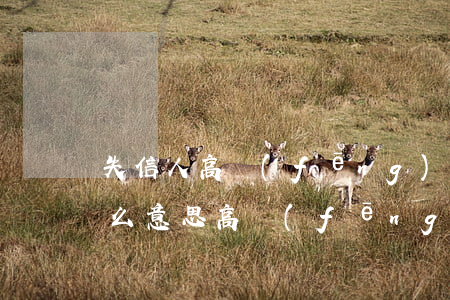 失信人高 (fēg.)
么意思高 (fēng